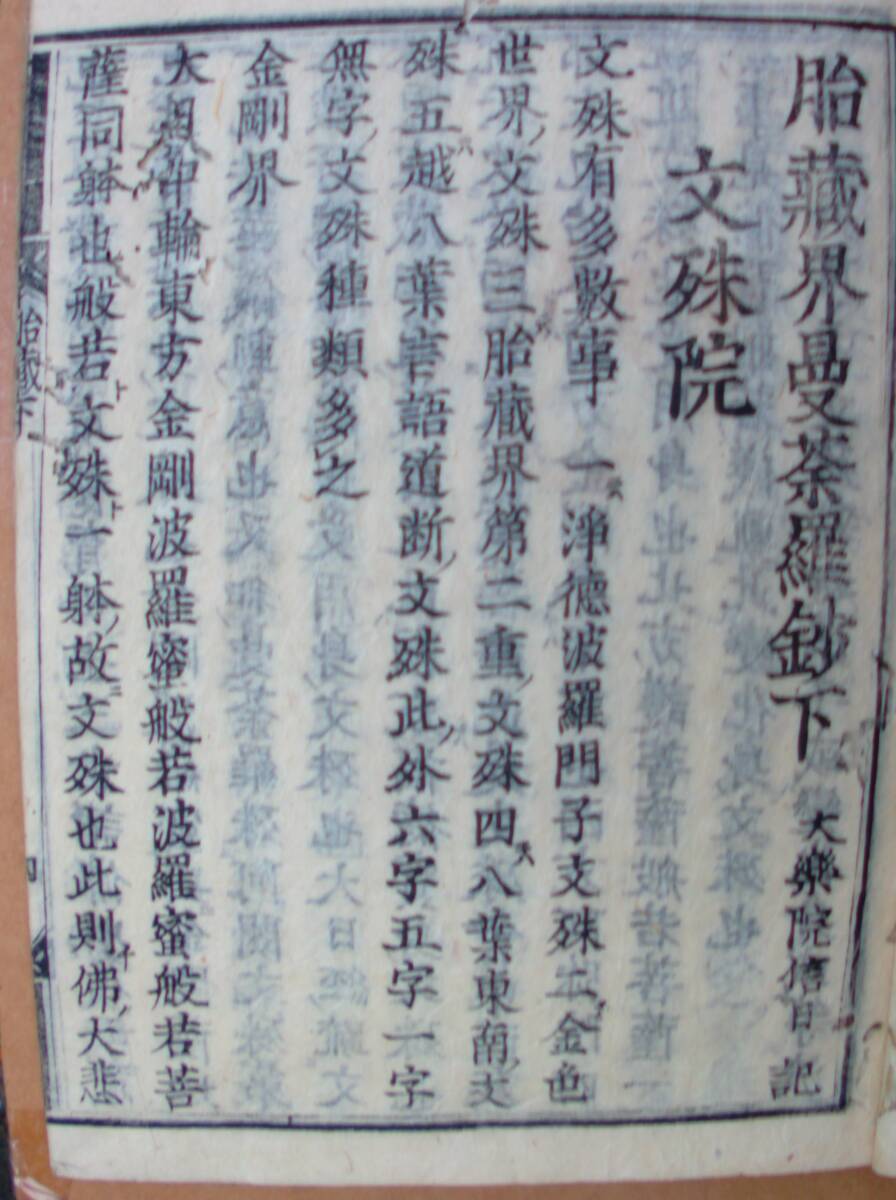 胎藏界曼荼羅鈔下 大樂院信日記
文殊院
文殊有多數事 一淨德波羅門子文殊二金色
世界文殊三胎藏界第二重文殊四八葉東南文
殊五越八葉言語道断文殊此外六字五字一字
無字文殊種類多之
金剛界
大奥中輪東方金剛波羅蜜般若波羅蜜般若菩
薩同躰也般若文殊一躰故文殊也此則佛大悲
胎藏下